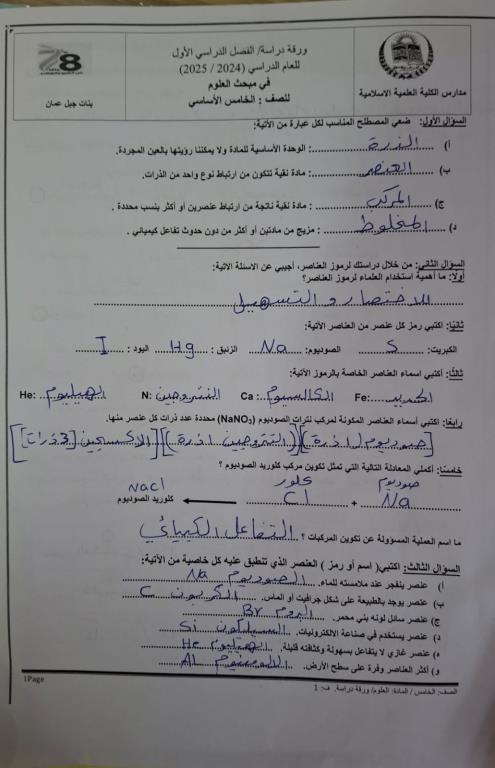 ورقة دراسة/ الفصل الدراسي الأول
للعام الدراسي (2024 / 2025)
في مبحث العلوم
للصف : الخامس الأساسي
مدارس الكلية العلمية الاسلامية
78
بنات جبل عمان
السؤال الأول: ضعي المصطلح المناسب لكل عبارة من الأتية:
أ) الذرة : الوحدة الأساسية للمادة ولا يمكننا رؤيتها بالعين المجردة.
ب) العنصر : مادة نقية تتكون من ارتباط نوع واحد من الذرات.
ج) المركب : مادة نقية ناتجة من ارتباط عنصرين أو أكثر بنسب محددة .
د) المخلوط : مزيج من مادتين أو أكثر من دون حدوث تفاعل كيميائي .
السؤال الثاني: من خلال دراستك لرموز العناصر، أجيبي عن الاسئلة الاتية:
أولا: ما أهمية استخدام العلماء لرموز العناصر؟
للاختصار و التسهيل
ثانيًا: اكتبي رمز كل عنصر من العناصر الأتية:
الكبريت: S الصوديوم: Na الزئبق : Hg اليود : I
ثالثًا: أكتبي اسماء العناصر الخاصة بالرموز الأتية:
Fe: الحديد Ca : الكالسيوم N: النتروجين He: الهيليوم
رابعًا: اكتبي أسماء العناصر المكونة لمركب نترات الصوديوم (NaNO3) محددة عدد ذرات كل عنصر منها.
[صوديوم 1 ذرة] [النتروجين 1 ذرة] [الاكسجين 3 ذرات]
خامسًا: أكملي المعادلة التالية التي تمثل تكوين مركب كلوريد الصوديوم ؟
صوديوم كلور NaCl
Na + Cl كلوريد الصوديوم
ما اسم العملية المسؤولة عن تكوين المركبات ؟ التفاعل الكيميائي
السؤال الثالث: اكتبي( اسم أو رمز ) العنصر الذي تنطبق عليه كل خاصية من الأتية:
أ) عنصر ينفجر عند ملامسته للماء. الصوديوم Na
ب) عنصر يوجد بالطبيعة على شكل جرافيت أو الماس. الكربون C
ج) عنصر سائل لونه بني محمر. البروم Br
د) عنصر يستخدم في صناعة الالكترونيات. السيليكون Si
ه) عنصر غازي لا يتفاعل بسهولة وكثافته قليلة. الهيليوم He
و) أكثر العناصر وفرة على سطح الأرض. الالومنيوم Al
1Page
الصف: الخامس / المادة: العلوم/ ورقة دراسة. ف: 1